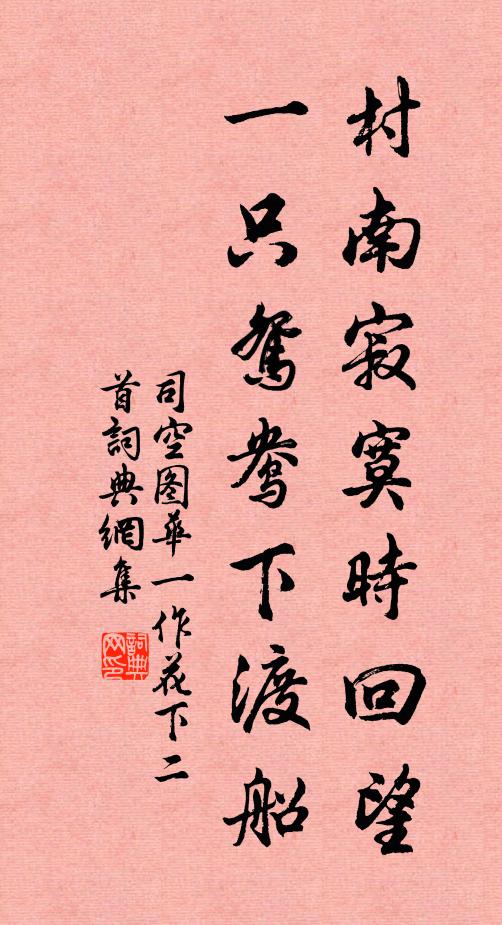 村南寂寞時回望
一只鴛鴦下渡船
司空图華一作花下二
首詞典網集
詞典
网印